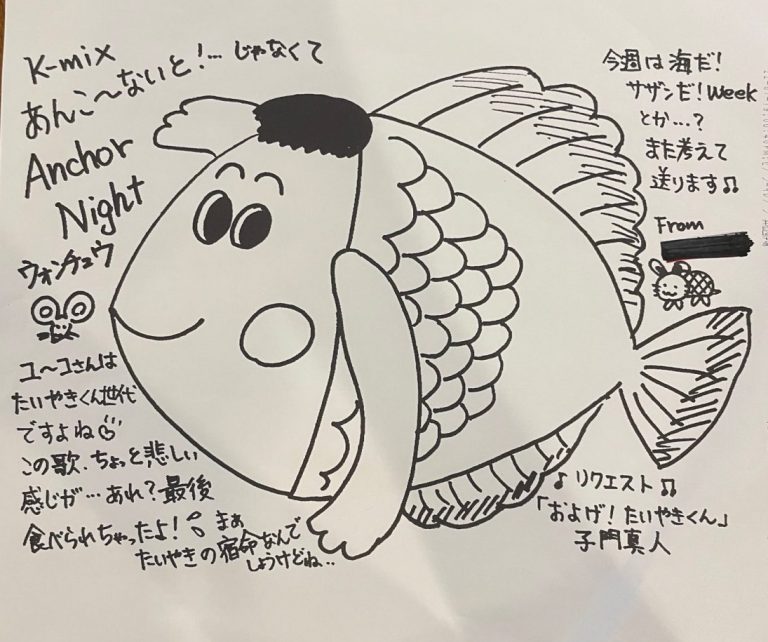 K-mix
あんこ〜ないと!… じゃなくて
Anchor
Night
ウォンチュウ
ユ〜コさんは
たいやきくん世代
ですよね
この歌、ちょっと悲しい
感じが…あれ?最後
食べられちゃったよ!
まぁ
たいやきの宿命なんで
しょうけどね‥
今週は海だ!
サザンだ!Week
とか…?
また考えて
送ります♫
From
♪リクエスト♫
「およげ!たいやきくん」
子門真人